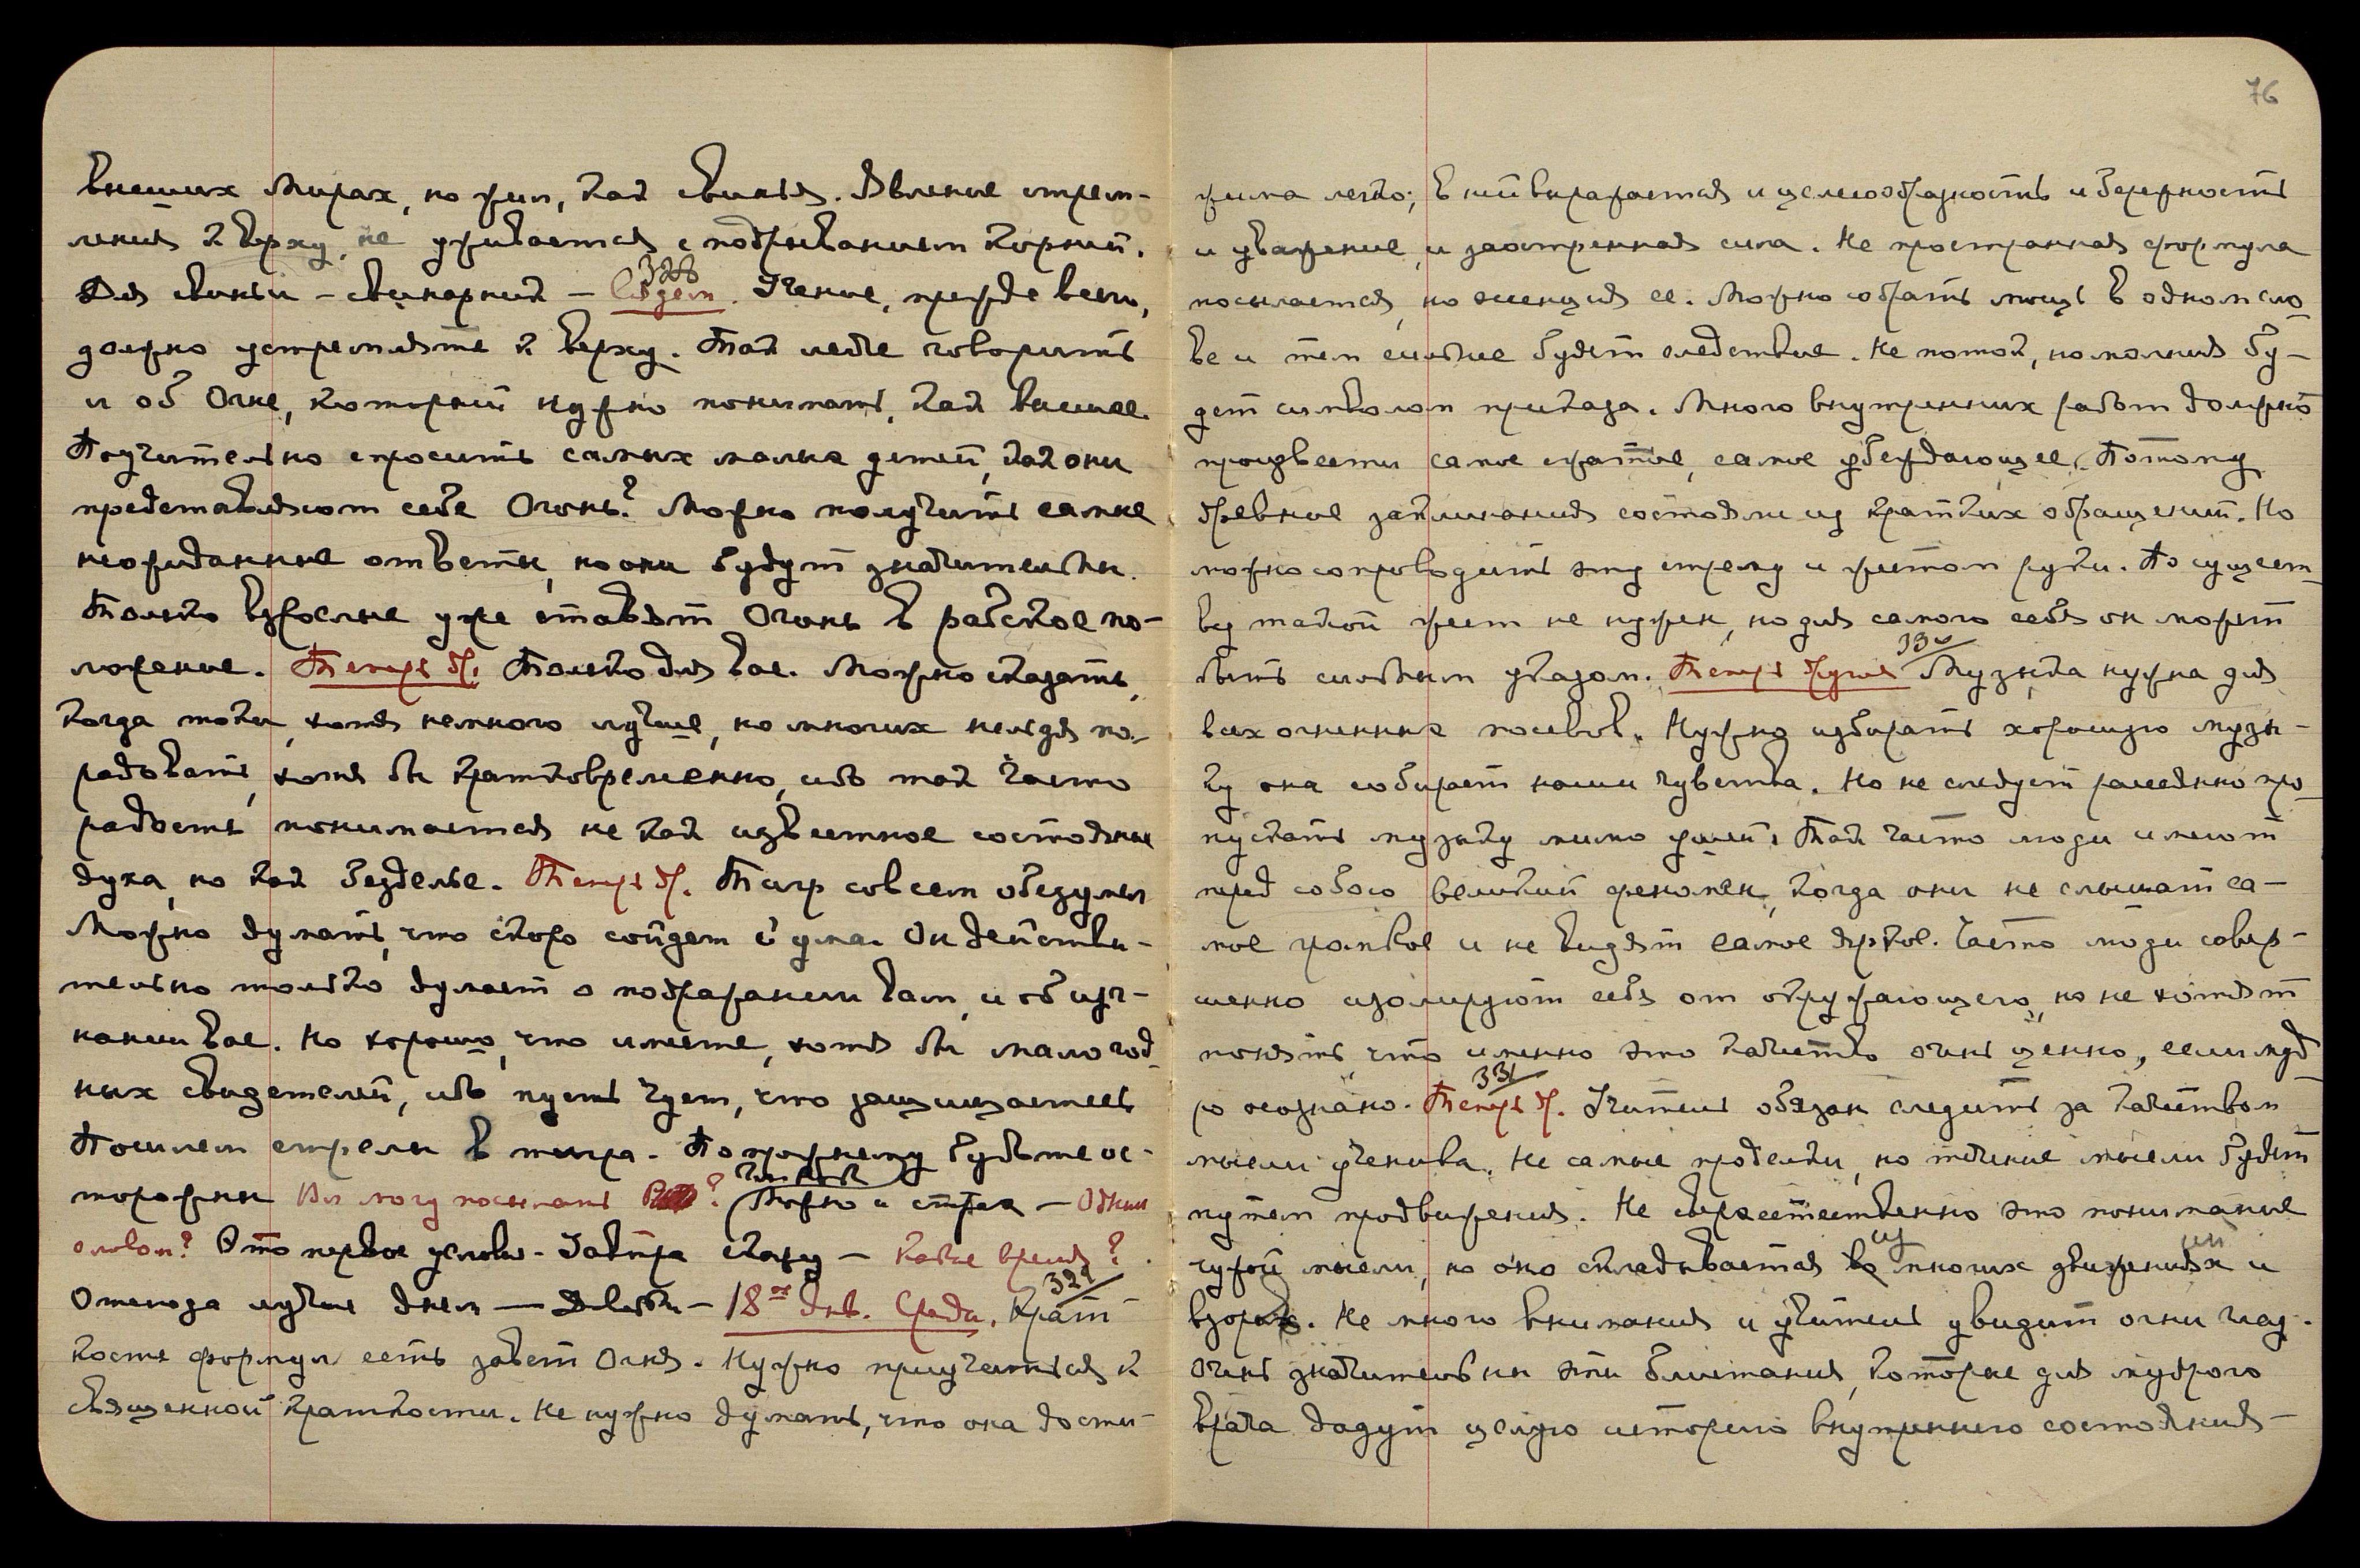 внешних Мирах, но жил, как свинья. Явление стрем-
ления кверху не уживается с подрыванием корней.
Для свиньи - свинарник -
328
Учение, прежде всего,
должно устремлять к верху. Так легче говорить
и об Огне, который нужно понимать, как высшее.
Поучительно спросить самых малых детей, как они
представляют себе Огонь? Можно получить самые
неожиданные ответы, но они будут значительны.
Только взрослые уже ставят Огонь в рабское по-
ложение. Теперь др. Только для вас. Можно сказать,
когда токи, хотя немного лучше, но многих нельзя по-
радовать, хотя бы кратковременно, ибо так часто
радость понимается не как известное состояние
духа, но как безделье. Теперь др. Тигр совсем обезумел
Можно думать, что скоро сойдет с ума. Он действи-
тельно только думает о подражании Вам, и об изг-
нании Вас. Но хорошо, что имеете, хотя бы малогод-
ных свидетелей, ибо пусть чует, что защищаетесь
Пошлем стрелы в тигра. По прежнему будьте ос-
торожны Я могу посылать ? Можно и страх - Одним
словом? Это первое условие - Завтра скажу - Какое время?
Отсюда лучше днем - Довольно - 18ое Янв. Среда.
329
Крат
кость формул есть завет Огня. Нужно приучаться к
священной краткости. Не нужно думать, что она дости-
76
жима легко; в ней выражается и целесообразность и бережность
и уважение, и заостренная сила. Не пространная формула
посылается, но эссенция ее. Можно собрать мощь в одном сло
ве и тем сильнее будет следствие. Не поток, но молния бу-
дет символом приказа. Много внутренних работ должно
произвести самое сжатое, самое убеждающее. Потому
древние заклинания состояли из кратких обращений. Но
можно сопроводить эту стрелу и жестом руки. По сущест
ву такой жест не нужен, но для самого себя он может
быть сильным указом. Теперь другое
330
Музыка нужна для
всех огненных посевов. Нужно избирать хорошую музы-
ку она собирает наши чувства. Но не следует рассеянно про
пускать музыку мимо ушей. Так часто люди имеют
перед собою великий феномен, когда они не слышат са-
мое громкое и не видят самое яркое. Часто люди совер-
шенно изолируют себя от окружающего, но не хотят
понять, что именно это качество очень ценно, если муд
ро осознано. Теперь др.
331
Учитель обязан следить за качеством
мысли ученика. Не самые проделки, но течение мысли будет
путем продвижения. Не сверхестественно это понимание
чужой мысли, но оно складывается из многих движений и
взоров. Не много внимания и учитель увидит огни глаз.
Очень значительны эти блистания, которые для мудрого
врача дадут целую историю внутреннего состояния -